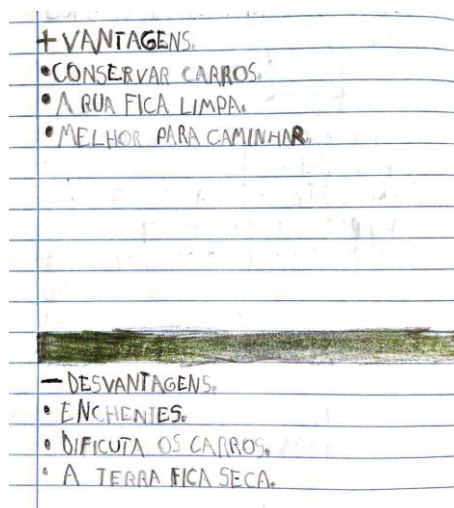 + VANTAGENS.
• CONSERVAR CARROS.
• A RUA FICA LIMPA.
• MELHOR PARA CAMINHAR.
- DESVANTAGENS.
• ENCHENTES.
• DIFICUTA OS CARROS.
• A TERRA FICA SECA.